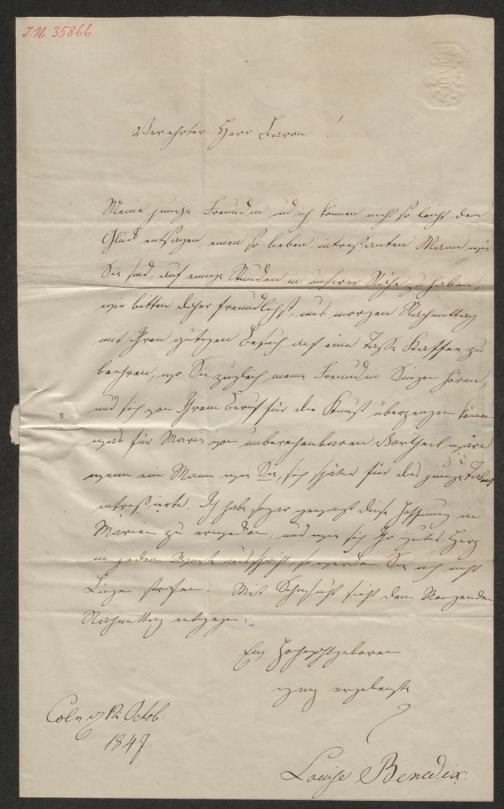 J.N. 35866
Verehrter Herr Baron!
Meine junge Freundin und ich können nicht so leicht dem
Glück entsagen, einen so lieben intreßanten Mann wie
Sie sind, auf einige Stunden in unserer Nähe zu haben,
wir bitten daher freundlichst, uns morgen Nachmittag
mit Ihrem gütigen Besuch auf eine Taße Kaffee zu
beehren, wo Sie zugleich meine Freundin Singen hören,
und sich von Ihrem Beruf für die Kunst überzeugen können
was für Marie von unberechenbarem Vortheil wäre
wenn ein Mann wie Sie, sich später für das junge Talent
intreßierte. Ich habe sogar gewagt diese Hoffnung in
Marien zu erwecken, und wie sich Ihr gutes Herz
in jedem Worte ausspricht, so werden Sie mich nicht
Lügen strafen. Mit Sehnsucht sieht dem Morgenden
Nachmittag entgegen.
Eur Hochwohlgeboren
ganz ergebenste
Louise Benedix
Coln 12 Octob.
1847.